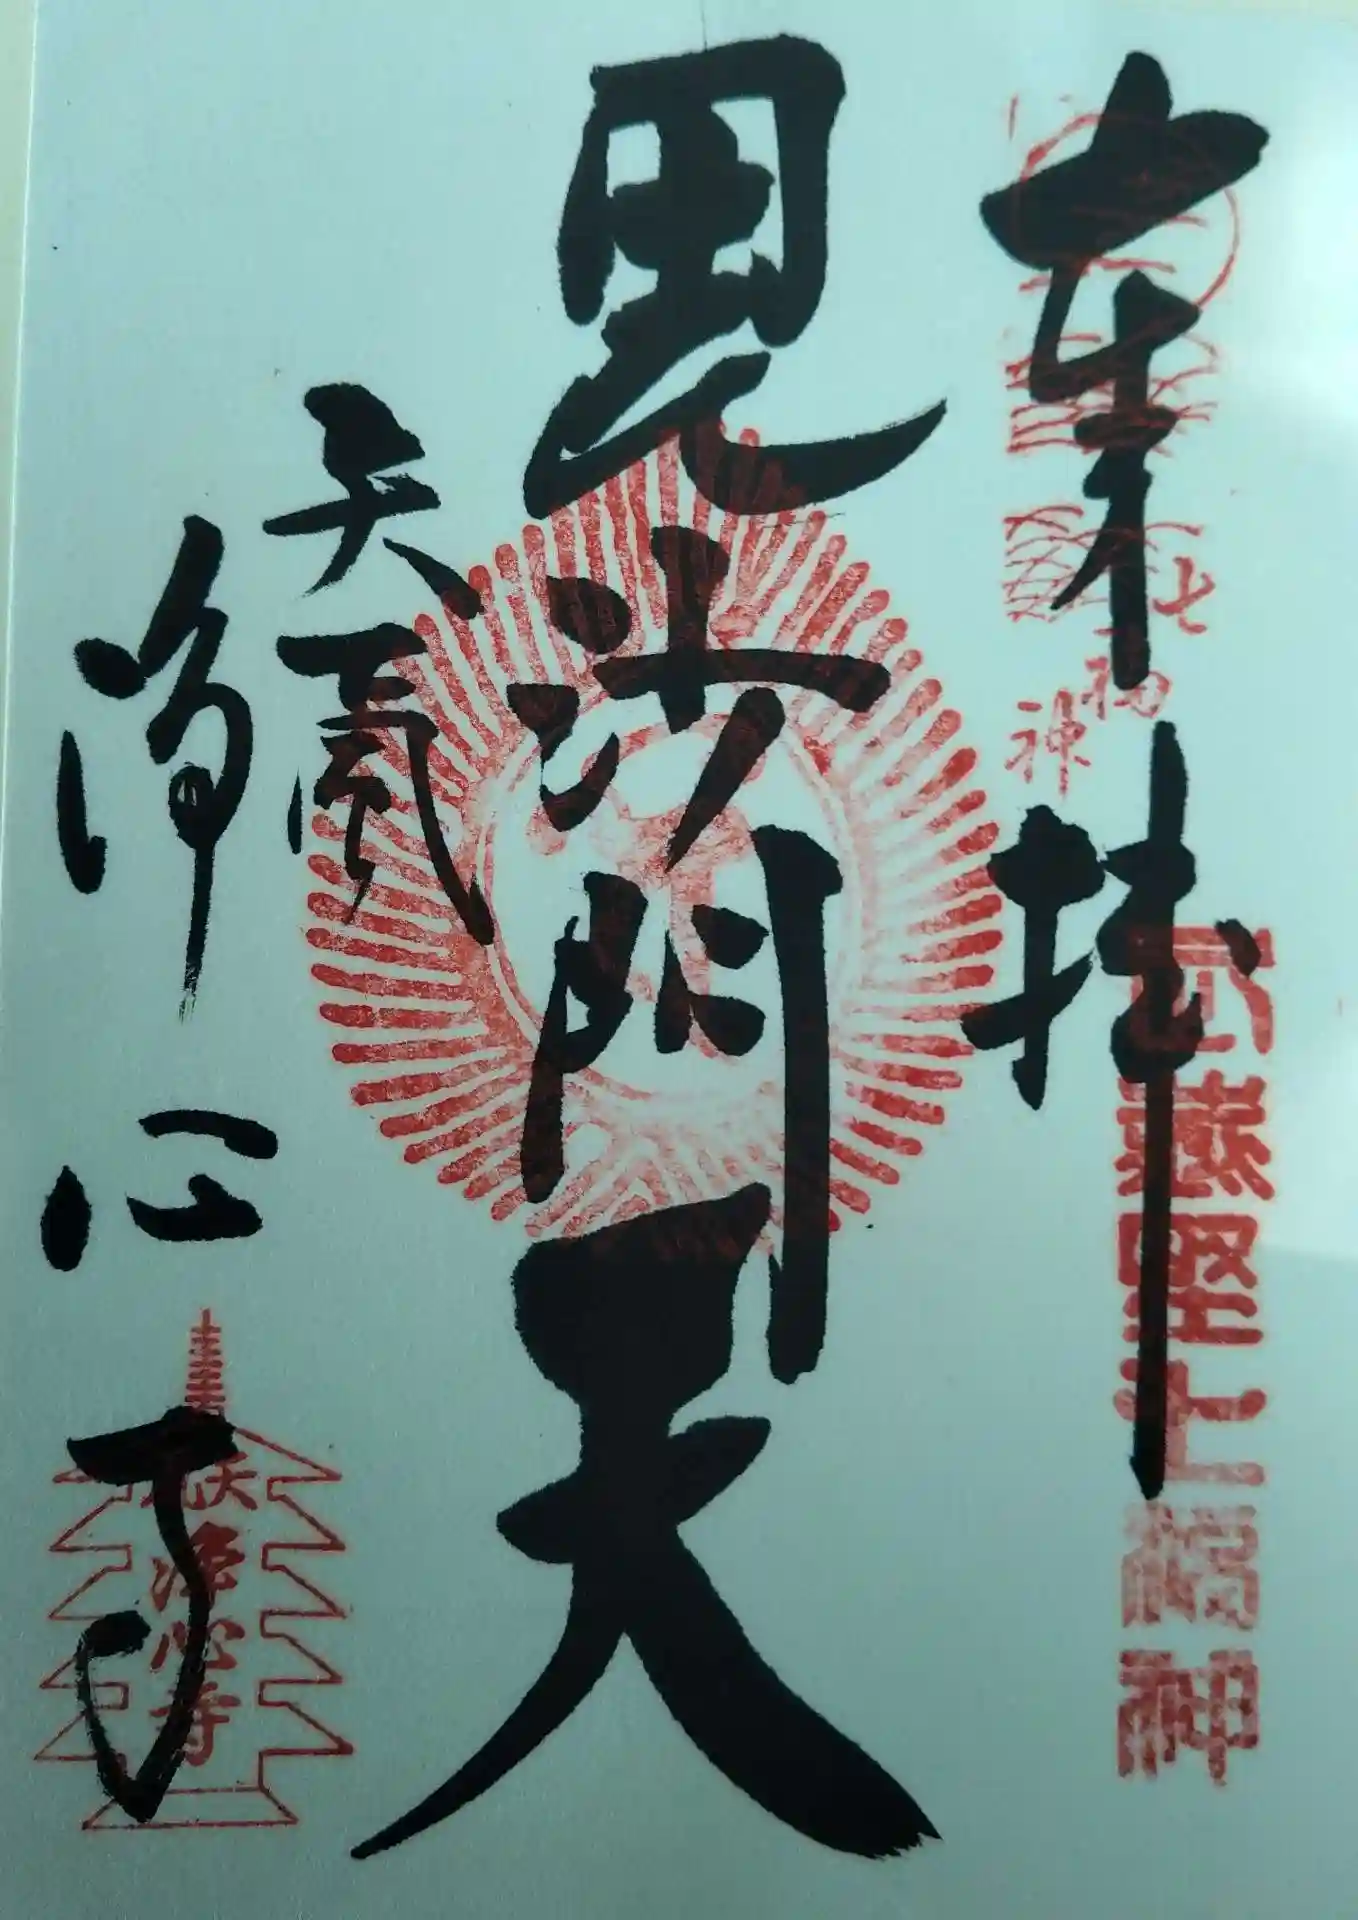 奉拝
七福神
武蔵野七福神
毘沙門天
矢颪
浄心寺
矢颪
浄心寺